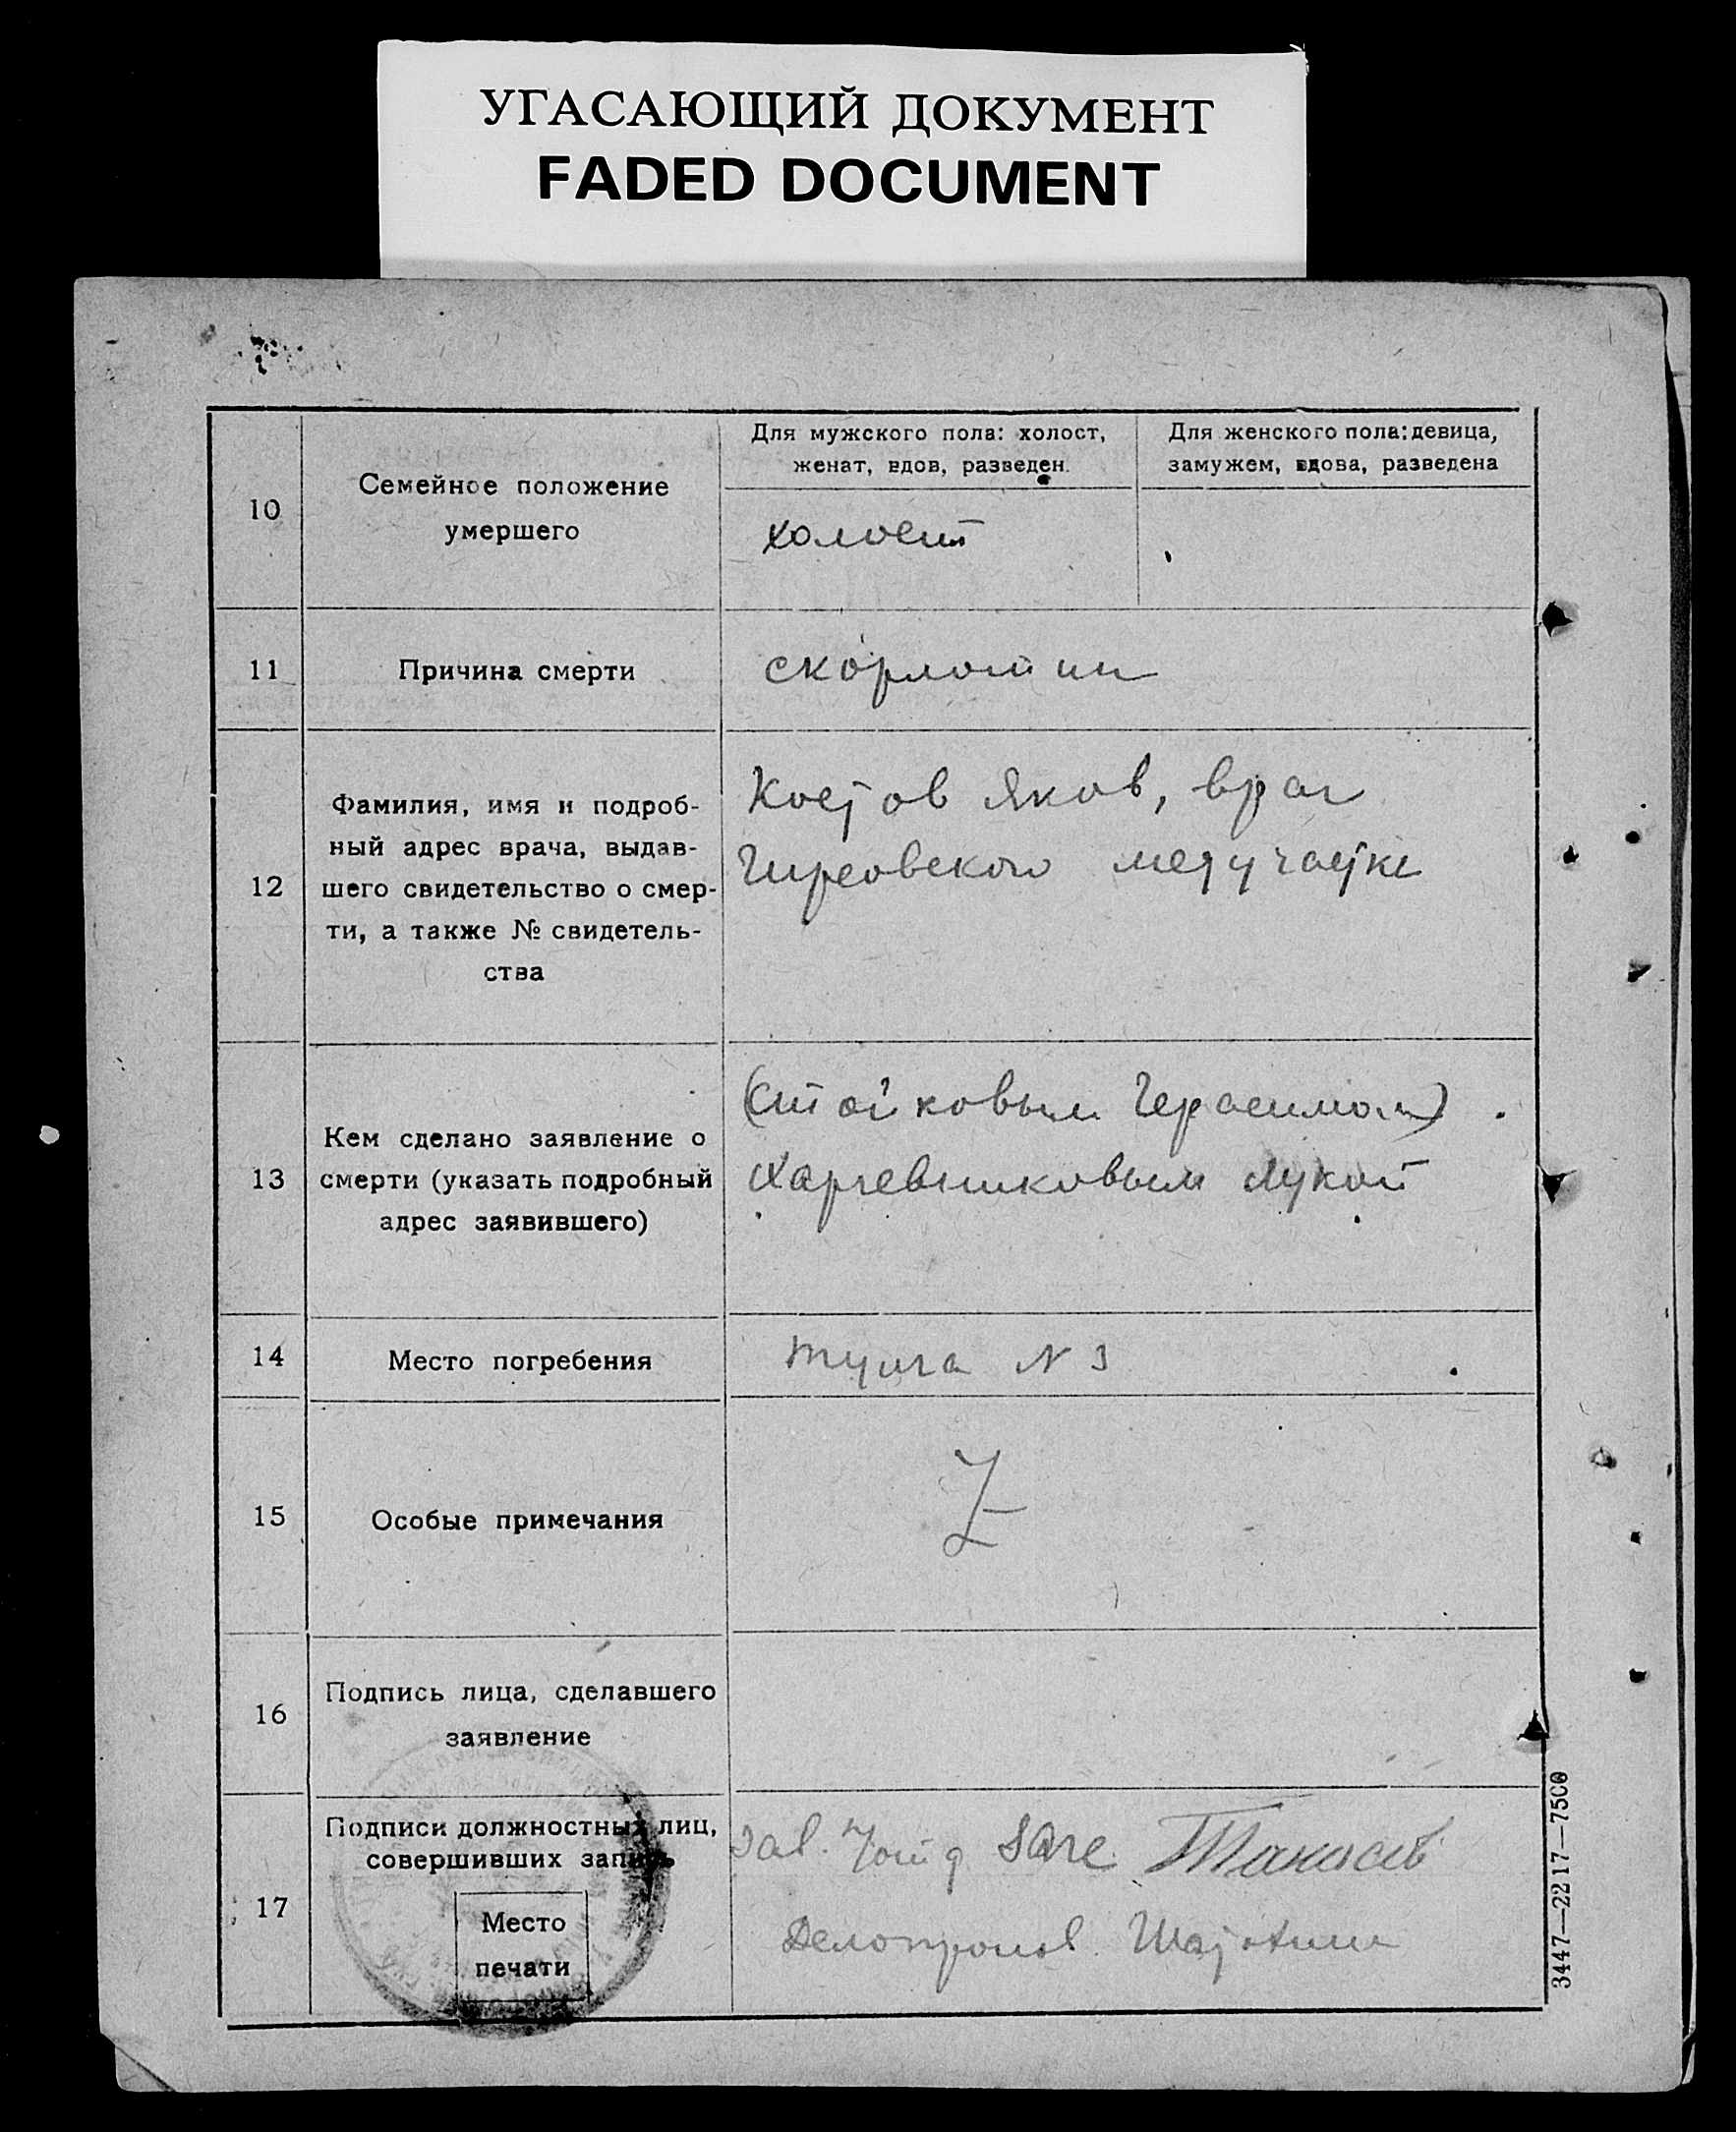 УГАСАЮЩИЙ ДОКУМЕНТ
FADED DOCUMENT
10
Семейное положение
умершего
Для мужского пола: холост,
женат, вдов, разведен
Для женского пола: девица,
замужем, вдова, разведена
холост
11
Причина смерти
скорлотин
12
Фамилия, имя и подроб-
ный адрес врача, выдав-
шего свидетельство о смер-
ти, а также № свидетель-
ства
Костов Яков, врач
медучастка
13
Кем сделано заявление о
смерти (указать подробный
адрес заявившего)
(Стойковым Герасимом)
Харчевниковым Лукой
14
Место погребения
N 3
15
Особые примечания
Z
16
Подпись лица, сделавшего
заявление
17
Подписи должностных лиц,
совершивших запись
Место
печати
Зав.
Делопроизв.
3447—2217—7500